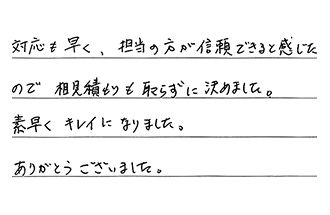 対応も早く、担当の方が信頼できると感じた
ので 相見積もりも取らずに決めました。
素早くキレイになりました。
ありがとうございました。